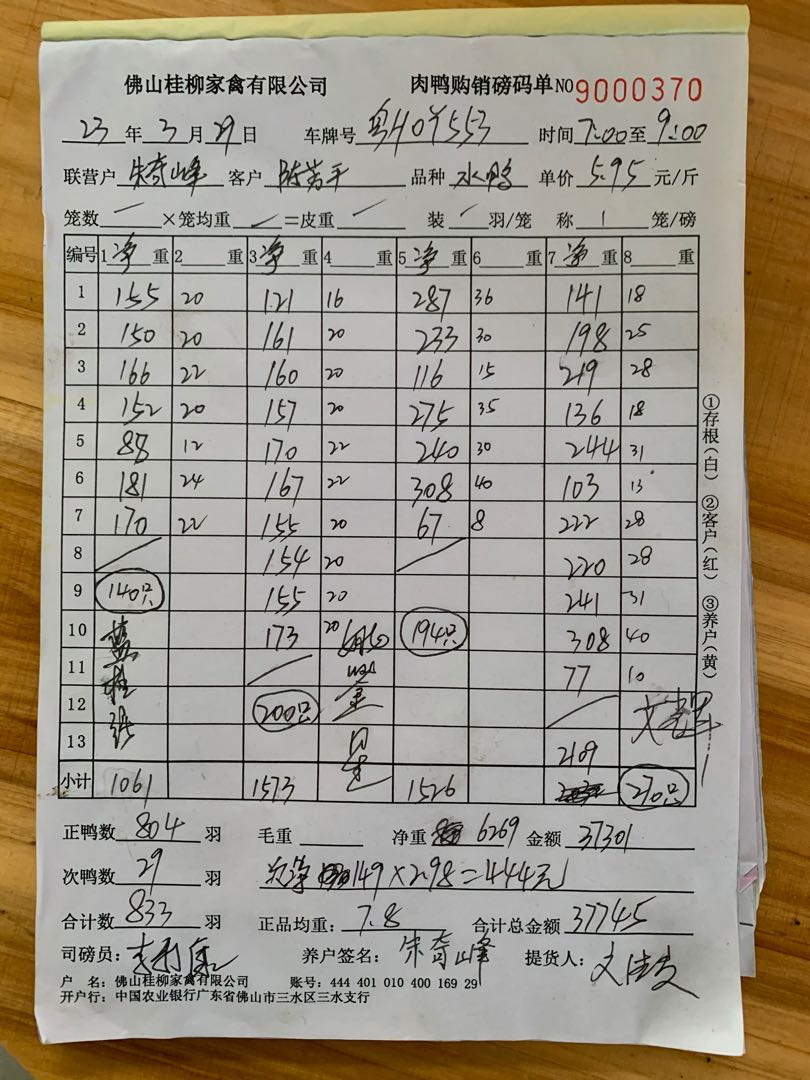 佛山桂柳家禽有限公司 肉鸭购销磅码单 NO 9000370
23 年 3 月 29 日 车牌号 粤H0Y553 时间 7:00 至 9:00
联营户 朱奇峰 客户 陈芳平 品种 水鸭 单价 5.95 元/斤
笼数 一 ×笼均重 一 =皮重 一 装 / 羽/笼 称 1 笼/磅
编号 1 净 重 2 重 3 净 重 4 重 5 净 重 6 重 7 净 重 8 重
1 155 20 121 16 287 36 141 18
2 150 20 161 20 233 30 198 25
3 166 22 160 20 116 15 219 28
4 152 20 157 20 275 35 136 18
5 88 12 170 22 240 30 244 31
6 181 24 167 22 308 40 103 13
7 170 22 155 20 67 8 222 28
8 / 154 20 / 220 28
9 140只 155 20 241 31
10 173 20 194只 308 40
11 / 77 10
12 200只 /
13 2109
小计 1061 1573 1526 270只
①存根(白) ②客户(红) ③养户(黄)
正鸭数 804 羽 毛重 净重 6269 金额 37301
次鸭数 29 羽 次净 149×2.98=444元
合计数 833 羽 正品均重: 7.8 合计总金额 37745
司磅员: 养户签名: 朱奇峰 提货人:
户 名: 佛山桂柳家禽有限公司 账号: 444 401 010 400 169 29
开户行: 中国农业银行广东省佛山市三水区三水支行